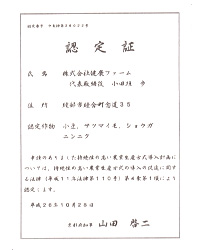 認定証
氏名　株式会社健康ファーム
代表取締役　小田垣　歩
住所　綾部市睦合町
認定作物　小豆、サツマイモ、ショウガ
ニンニク
申請のありました持続性の高い農業生産方式導入計画に
ついては、持続性の高い農業生産方式の導入の促進に関す
る法律（平成11年法律第110号）第4条第1項により
認定します。
平成26年10月28日
京都府知事　山田　啓二